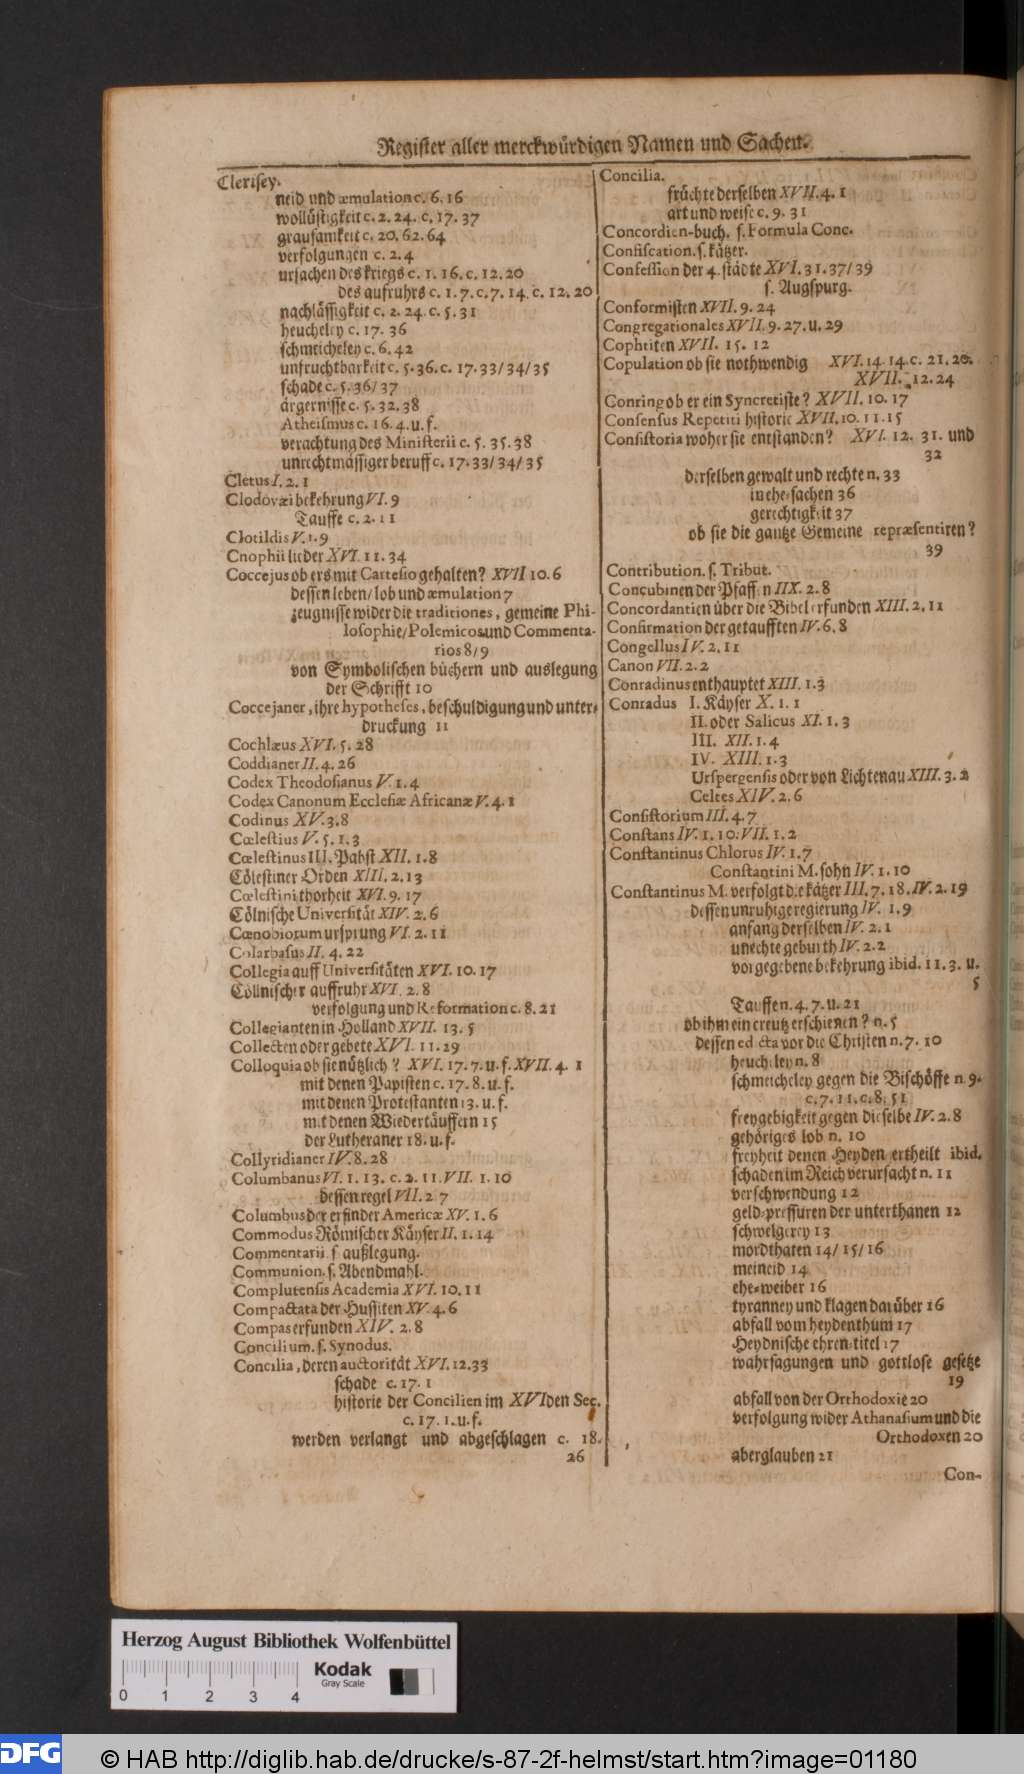 Register aller merckwürdigen Namen und Sachen.
Clerisey.
neid und æmulation c. 6. 16
wollüstigkeit c. 2. 24. c. 17. 37
grausamkeit c. 20. 62. 64
verfolgungen c. 2. 4
ursachen des kriegs c. 1. 16. c. 12. 20
des aufruhrs c. 1. 7. c. 7. 14. c. 12. 20
nachlässigkeit c. 2. 24. c. 5. 31
heucheley c. 17. 36
schmeicheley c. 6. 42
unfruchtbarkeit c. 5. 36. c. 17. 33/34/35
schade c. 5. 36/37
ärgernisse c. 5. 32. 38
Atheismus c. 16. 4. u. f.
verachtung des Ministerii c. 5. 35. 38
unrechtmässiger beruff c. 17. 33/34/35
Cletus I. 2. 1
Clodovæi bekehrung VI. 9
Tauffe c. 2. 11
Clotildis V. 1. 9
Cnophii lieder XVI. 11. 34
Coccejus ob ers mit Cartesio gehalten? XVII 10. 6
dessen leben/lob und æmulation 7
zeugnisse wider die traditiones, gemeine Phi-
losophie/Polemicos und Commenta-
rios 8/9
von Symbolischen büchern und auslegung
der Schrifft 10
Coccejaner, ihre hypotheses, beschuldigung und unter-
druckung 11
Cochlæus XVI. 5. 28
Coddianer II. 4. 26
Codex Theodosianus V. 1. 4
Codex Canonum Ecclesiæ Africanæ V. 4. 1
Codinus XV. 3. 8
Cœlestius V. 5. 1. 3
Cœlestinus III. Pabst XII. 1. 8
Cölestiner Orden XIII. 2. 13
Cœlestini thorheit XVI. 9. 17
Cölnische Universität XIV. 2. 6
Cœnobiorum ursprung VI. 2. 11
Colarbasus II. 4. 22
Collegia auff Universitäten XVI. 10. 17
Cöllnischer auffruhr XVI. 2. 8
verfolgung und Reformation c. 8. 21
Collegianten in Holland XVII. 13. 5
Collecten oder gebete XVI. 11. 29
Colloquia ob sie nützlich? XVI. 17. 7. u. f. XVII. 4. 1
mit denen Papisten c. 17. 8. u. f.
mit denen Protestanten 13. u. f.
mit denen Wiedertäuffern 15
der Lutheraner 18. u. f.
Collyridianer IV. 8. 28
Columbanus VI. 1. 13. c. 2. 11. VII. 1. 10
dessen regel VII. 2 7
Columbus der erfinder Americæ XV. 1. 6
Commodus Römischer Käyser II. 1. 14
Commentarii. s außlegung.
Communion. s. Abendmahl.
Complutensis Academia XVI. 10. 11
Compactata der Hussiten XV. 4. 6
Compas erfunden XIV. 2. 8
Concilium. s. Synodus.
Concilia, deren auctorität XVI. 12. 33
schade c. 17. 1
historie der Concilien im XVIden Sec.
c. 17. 1. u. f.
werden verlangt und abgeschlagen c. 18.
26
Concilia.
früchte derselben XVII. 4. 1
art und weise c. 9. 31
Concordien-buch. s. Formula Conc.
Confiscation. s. kätzer.
Confession der 4. städte XVI. 31. 37/39
s. Augspurg.
Conformisten XVII. 9. 24
Congregationales XVII. 9. 27. u. 29
Cophtiten XVII. 15. 12
Copulation ob sie nothwendig XVI. 14. 14. c. 21. 20.
XVII. 12. 24
Conring ob er ein Syncretiste? XVII. 10. 17
Consensus Repetiti historie XVII. 10. 11. 15
Consistoria woher sie entstanden? XVI. 12. 31. und
32
derselben gewalt und rechte n. 33
in ehe-sachen 36
gerechtigkeit 37
ob sie die gantze Gemeine repræsentiren?
39
Contribution. s. Tribut.
Concubinen der Pfaffen IIX. 2. 8
Concordantien über die Bibel erfunden XIII. 2. 11
Confirmation der getaufften IV. 6. 8
Congellus IV. 2. 11
Canon VII. 2. 2
Conradinus enthauptet XIII. 1. 3
Conradus I. Käyser X. 1. 1
II. oder Salicus XI. 1. 3
III. XII. 1. 4
IV. XIII. 1. 3
Urspergensis oder von Lichtenau XIII. 3. 2
Celtes XIV. 2. 6
Consistorium III. 4. 7
Constans IV. 1. 10. VII. 1. 2
Constantinus Chlorus IV. 1. 7
Constantini M. sohn IV. 1. 10
Constantinus M. verfolgt die kätzer III. 7. 18. IV. 2. 19
dessen unruhige regierung IV. 1. 9
anfang derselben IV. 2. 1
unechte geburth IV. 2. 2
vorgegebene bekehrung ibid. 11. 3. u.
5
Tauffe n. 4. 7. u. 21
ob ihm ein creutz erschienen? n. 5
dessen edicta vor die Christen n. 7. 10
heucheley n. 8
schmeicheley gegen die Bischöffe n 9.
c. 7. 11. c. 8. 51
freygebigkeit gegen dieselbe IV. 2. 8
gehöriges lob n. 10
freyheit denen Heyden ertheilt ibid.
schaden im Reich verursacht n. 11
verschwendung 12
geld-pressuren der unterthanen 12
schwelgerey 13
mordthaten 14/15/16
meineid 14
ehe-weiber 16
tyranney und klagen darüber 16
abfall vom heydenthum 17
Heydnische ehren-titel 17
wahrsagungen und gottlose gesetze
19
abfall von der Orthodoxie 20
verfolgung wider Athanasium und die
Orthodoxen 20
aberglauben 21
Con-
Herzog August Bibliothek Wolfenbüttel
Kodak
Gray Scale
0 1 2 3 4
DFG
© HAB http://diglib.hab.de/drucke/s-87-2f-helmst/start.htm?image=01180